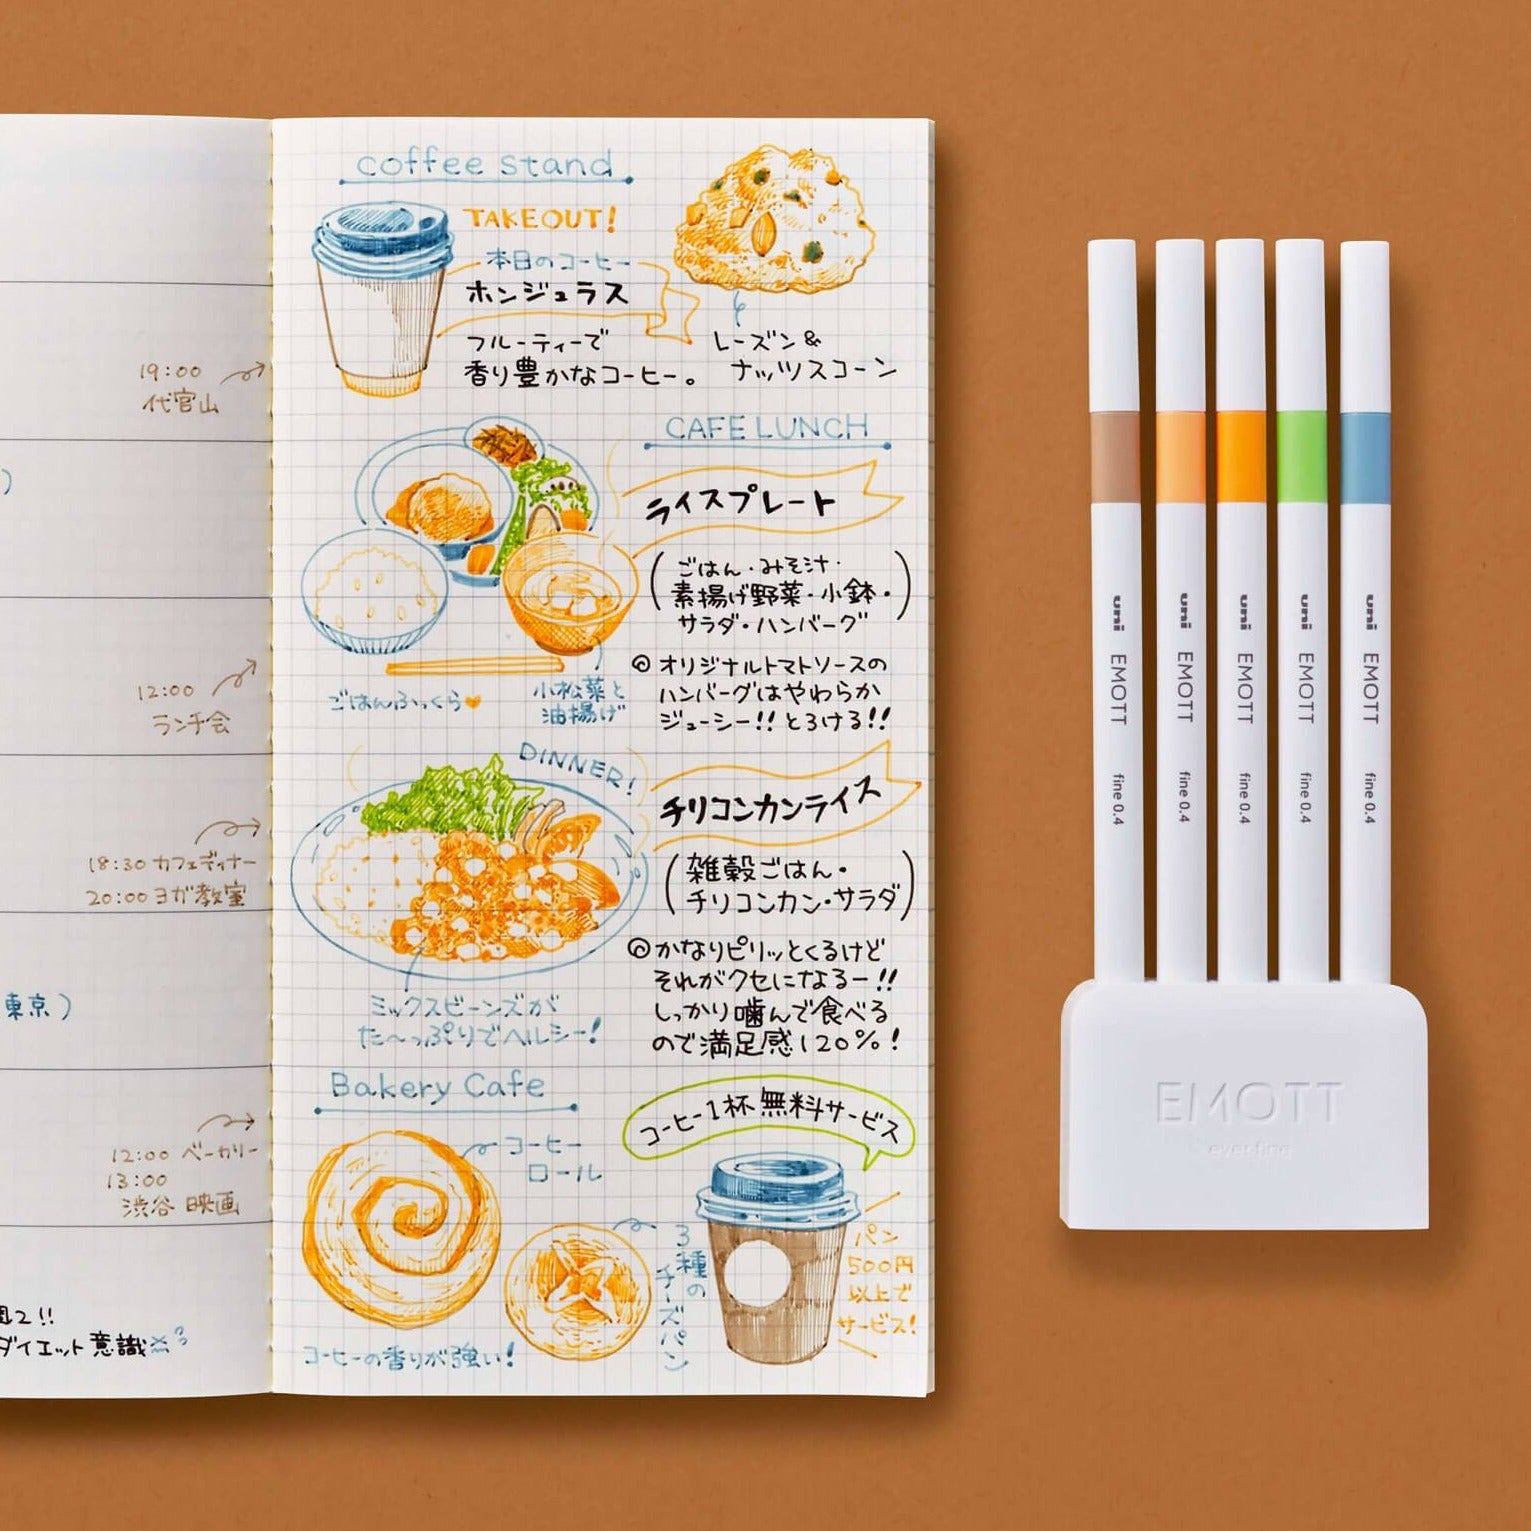 19:00
代官山
12:00
ランチ会
18:30 カフェディナー
20:00 ヨガ教室
東京)
12:00 ベーカリー
13:00
渋谷 映画
2!!
ダイエット意識
coffee stand
TAKEOUT!
本日のコーヒー
ホンジュラス
フルーティーで
香り豊かなコーヒー。
レーズン&
ナッツスコーン
CAFE LUNCH
ライスプレート
(ごはん・みそ汁・
素揚げ野菜・小鉢・
サラダ・ハンバーグ)
◎オリジナルトマトソースの
ハンバーグはやわらか
ジューシー!!とろける!!
ごはんふっくら♥
小松菜と
油揚げ
DINNER!
チリコンカンライス
(雑穀ごはん・
チリコンカン・サラダ)
◎かなりピリッとくるけど
それがクセになるー!!
しっかり噛んで食べる
ので満足感120%!
ミックスビーンズが
た〜っぷりでヘルシー!
Bakery Cafe
コーヒー1杯無料サービス
コーヒー
ロール
3種の
チーズパン
パン
500円
以上で
サービス!
コーヒーの香りが強い!
uni EMOTT fine 0.4
uni EMOTT fine 0.4
uni EMOTT fine 0.4
uni EMOTT fine 0.4
uni EMOTT fine 0.4
EMOTT
ever fine